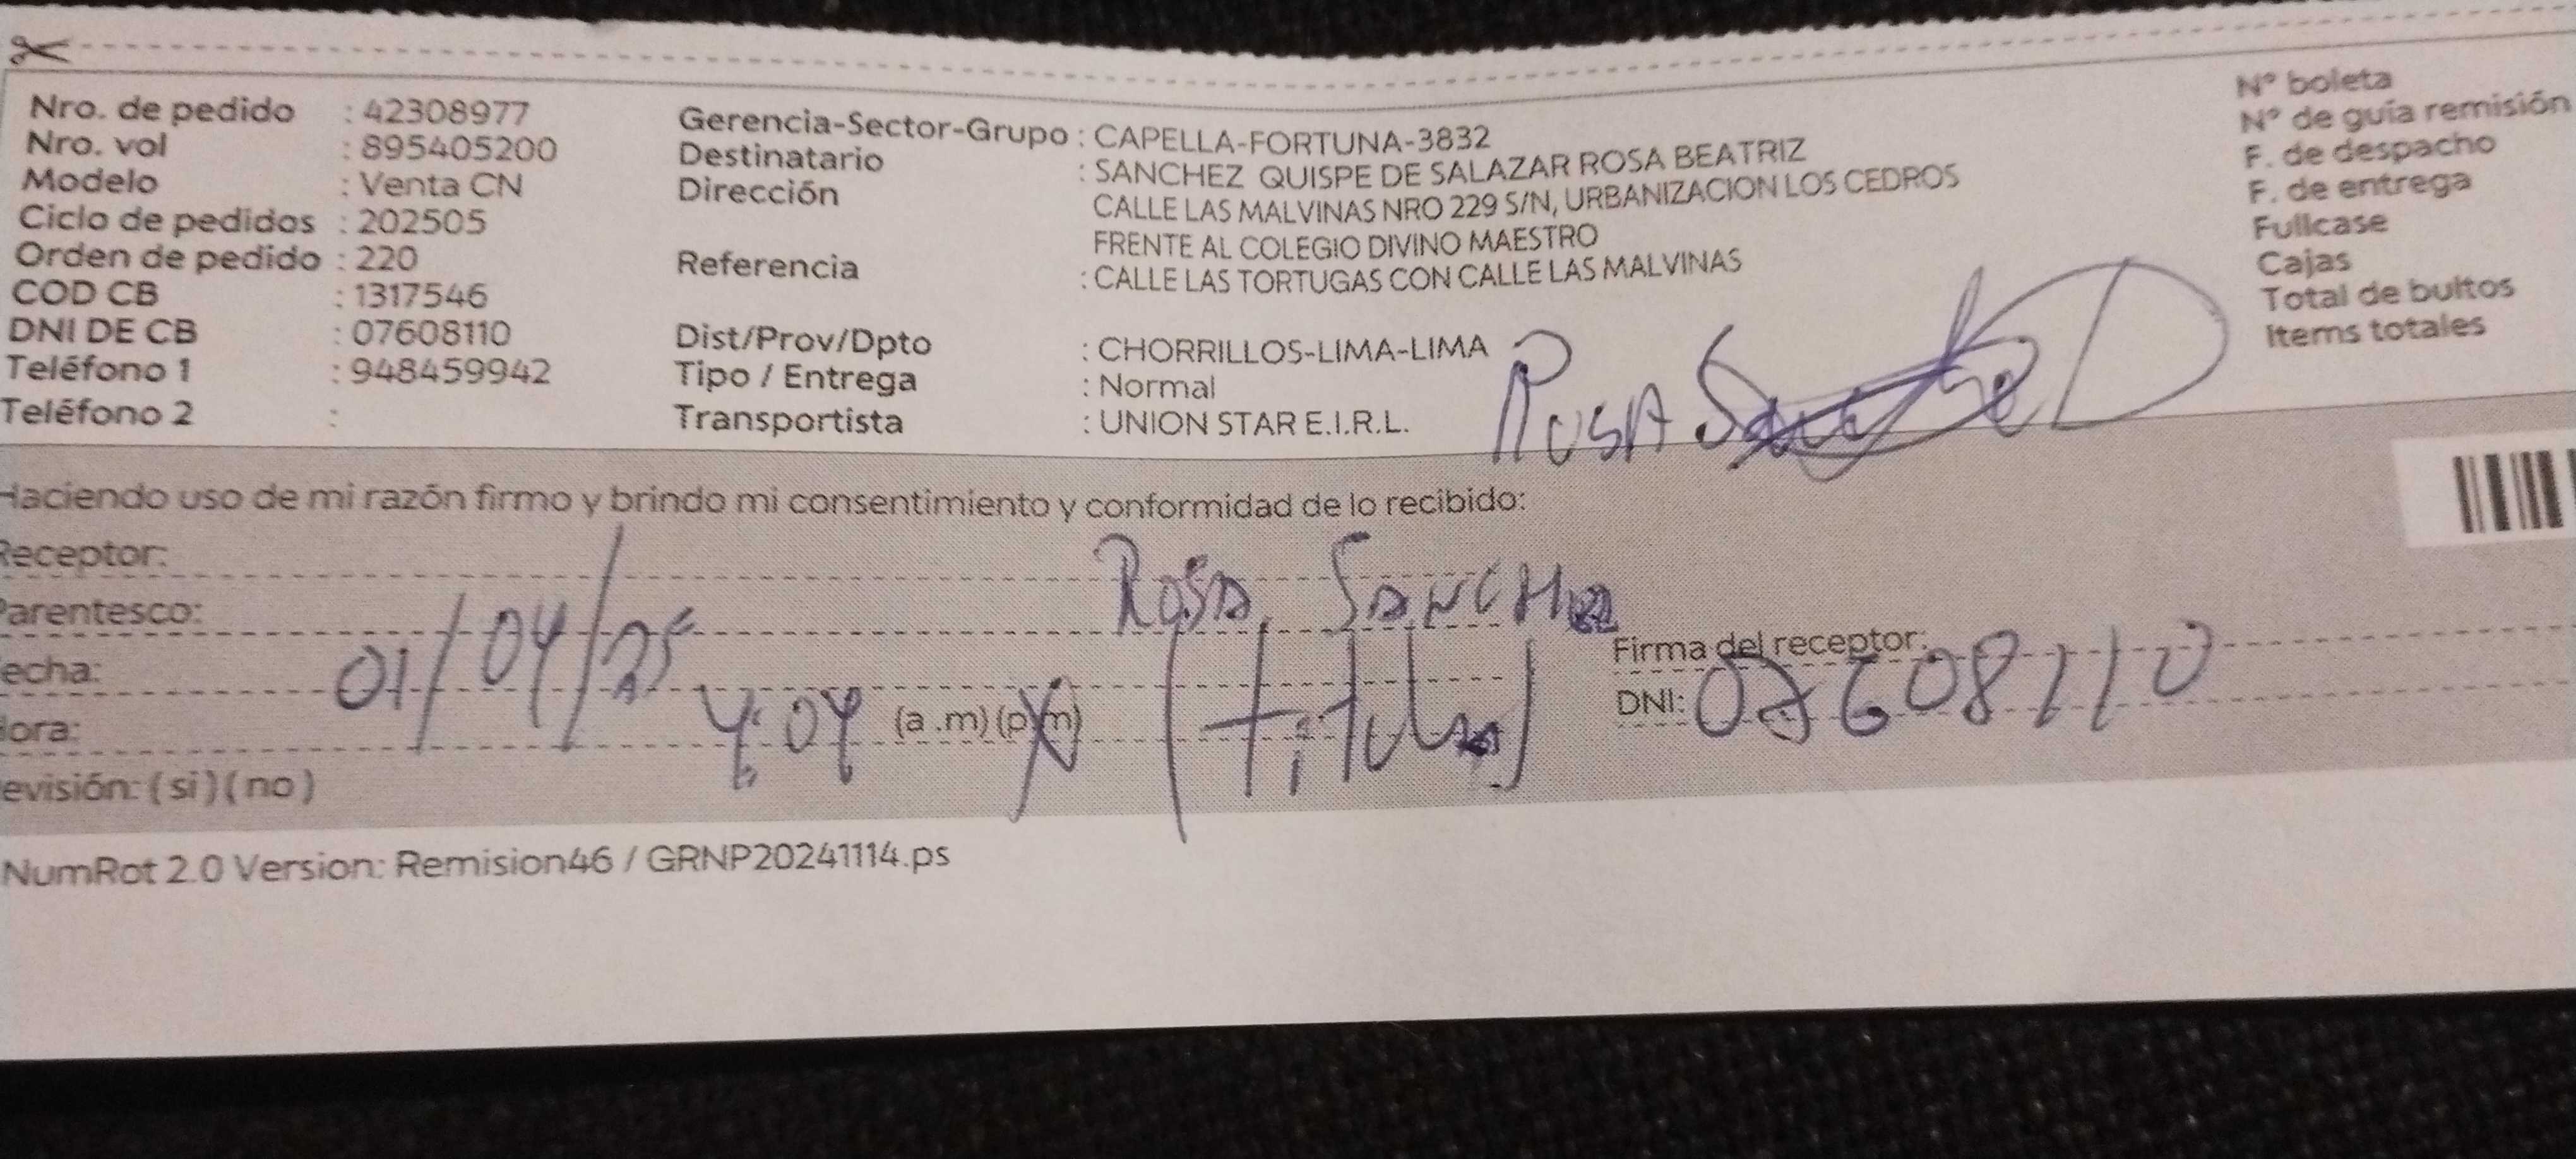 Nro. de pedido : 42308977
Nro. vol : 895405200
Modelo : Venta CN
Ciclo de pedidos : 202505
Orden de pedido : 220
COD CB : 1317546
DNI DE CB : 07608110
Teléfono 1 : 948459942
Teléfono 2 :
Gerencia-Sector-Grupo : CAPELLA-FORTUNA-3832
Destinatario : SANCHEZ QUISPE DE SALAZAR ROSA BEATRIZ
Dirección CALLE LAS MALVINAS NRO 229 S/N, URBANIZACION LOS CEDROS
FRENTE AL COLEGIO DIVINO MAESTRO
Referencia : CALLE LAS TORTUGAS CON CALLE LAS MALVINAS
Dist/Prov/Dpto : CHORRILLOS-LIMA-LIMA
Tipo / Entrega : Normal
Transportista : UNION STAR E.I.R.L.
Nº boleta
Nº de guía remisión
F. de despacho
F. de entrega
Fullcase
Cajas
Total de bultos
Items totales
ROSA Sanchez
Haciendo uso de mi razón firmo y brindo mi consentimiento y conformidad de lo recibido:
Receptor: ROSA SANCHEZ
Parentesco:
echa: 01/04/25
ora: 4:04 (a .m) (p.m) (titular)
Firma del receptor:
DNI: 07608110
evisión: ( si ) ( no )
NumRot 2.0 Version: Remision46 / GRNP20241114.ps